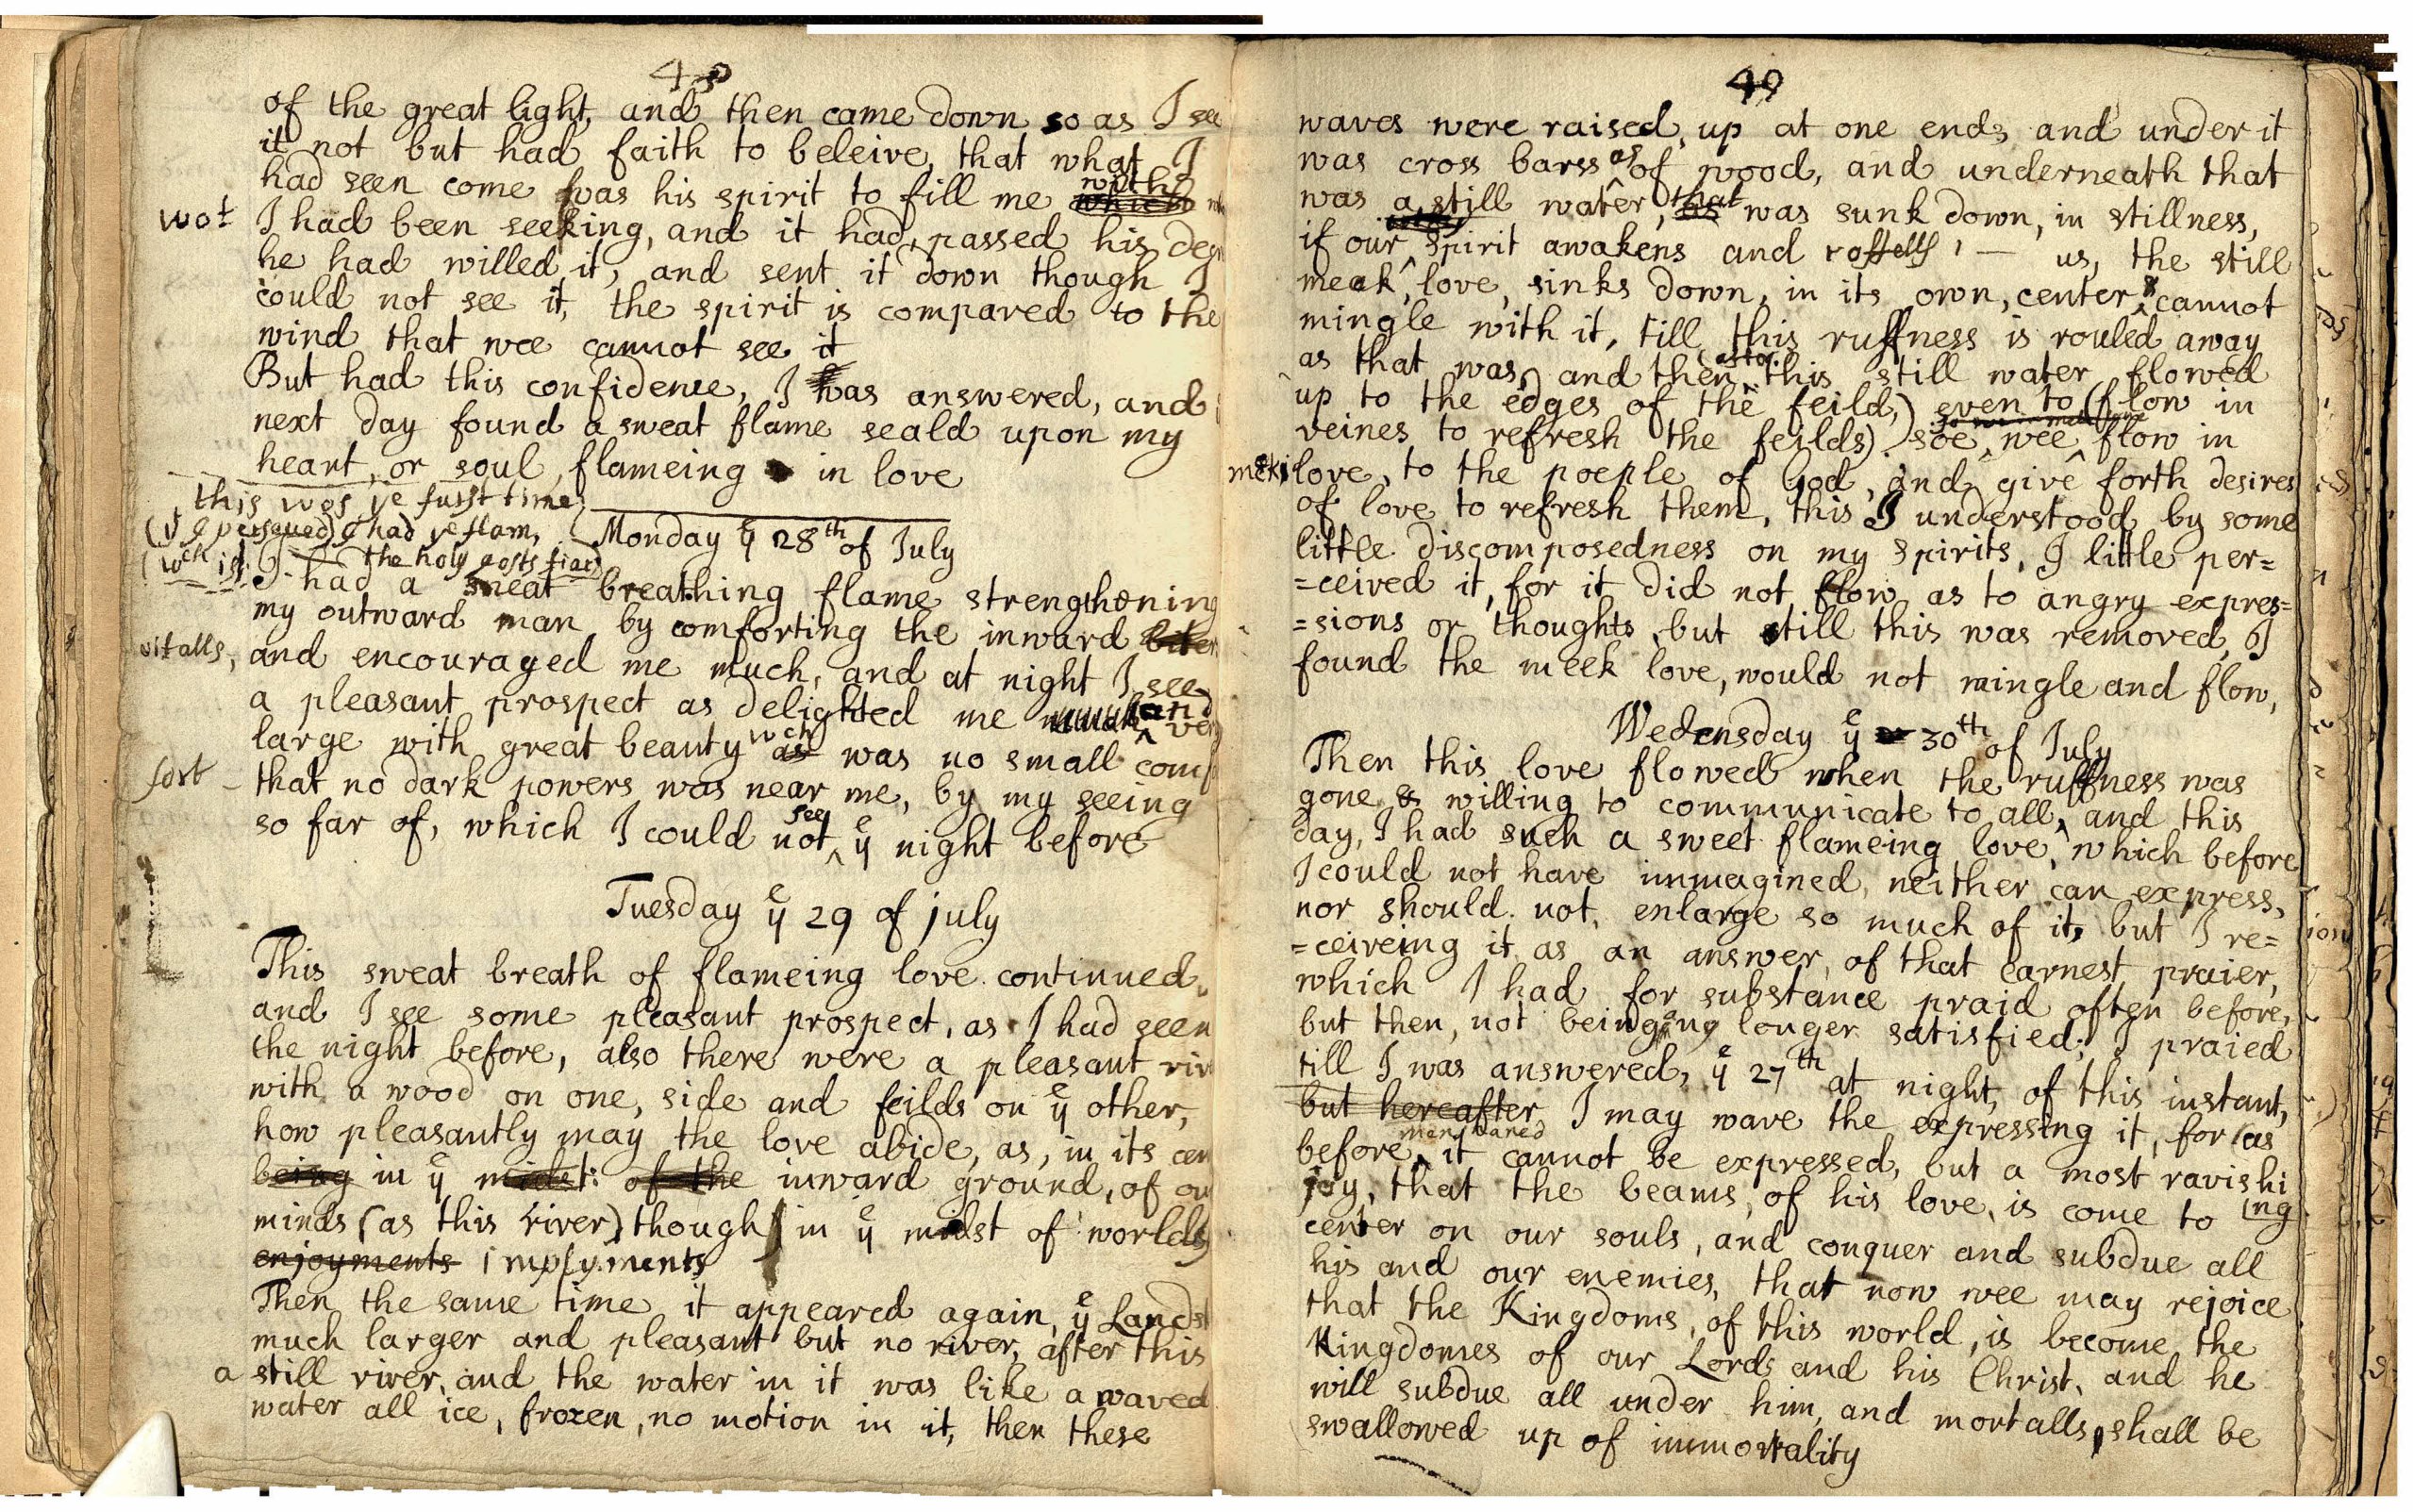 48
of the great light, and then came down so as I see
it not but had faith to beleive, that what I
had seen come was his spirit to fill me with which
wot I had been seeking, and it had, passed his
he had willed it, and sent it down though I
could not see it, the spirit is compared to the
wind that wee cannot see it
But had this confidence, I was answered, and
next day found a sweat flame seald upon my
heart, or soul, flameing in love
this was ye furst time
(if I perseued) I had ye flam,
(wch is the holy gosts fiar)
Monday ye 28th of July
I had a sweat breathing flame strengthening
my outward man by comforting the inward
vitalls, and encouraged me much, and at night I see
a pleasant prospect as delighted me much and very
large with great beauty as wch was no small com
fort that no dark powers was near me, by my seeing
so far of, which I could not see ye night before
Tuesday ye 29 of july
This sweat breath of flameing love continued,
and I see some pleasant prospect, as I had seen
the night before, also there were a pleasant riv
with a wood on one, side and feilds on ye other,
how pleasantly may the love abide, as, in its cen
being in ye midst: of the inward ground, of our
minds (as this river) though in ye midst of worlds
enjoyments imployments
Then the same time it appeared again, ye Lands
much larger and pleasant but no river, after this
a still river, and the water in it was like a waved
water all ice, frozen, no motion in it, then these
49
waves were raised, up at one end, and under it
was cross barss as of wood, and underneath that
was a still water, as that was sunk down, in stillness,
if our spirit awakens and us, the still
meek, love, sinks down, in its own, center & cannot
mingle with it, till this ruffness is rouled away
as that was, and then (after this still water flowed
up to the edges of the feild,) even to (flow in
veines to refresh the feilds) soe wee flow in
love, to the poeple of God, and give forth desires
of love to refresh them, this I understood by some
little discomposedness on my spirits, I little per=
=ceived it, for it did not flow as to angry expres=
=sions or thoughts, but still this was removed, I
found the meek love, would not mingle and flow,
Wedensday ye 30th of July
Then this love flowed when the ruffness was
gone & willing to communicate to all, and this
day, I had such a sweet flameing love, which before
I could not have immagined, neither can express,
nor should not, enlarge so much of it, but I re=
=ceiveing it as an answer, of that earnest praier,
which I had for substance praid often before,
but then, not being any longer satisfied; I praied
till I was answered, ye 27th at night, of this instant,
but hereafter I may wave the expressing it, for (as
before menshaned it cannot be expressed, but a most ravishi
ng joy, that the beams, of his love, is come to
center on our souls, and conquer and subdue all
his and our enemies, that now wee may rejoice
that the Kingdoms, of this world, is become the
Kingdomes of our Lords and his Christ, and he
will subdue all under him, and mortalls, shall be
swallowed up of immortality